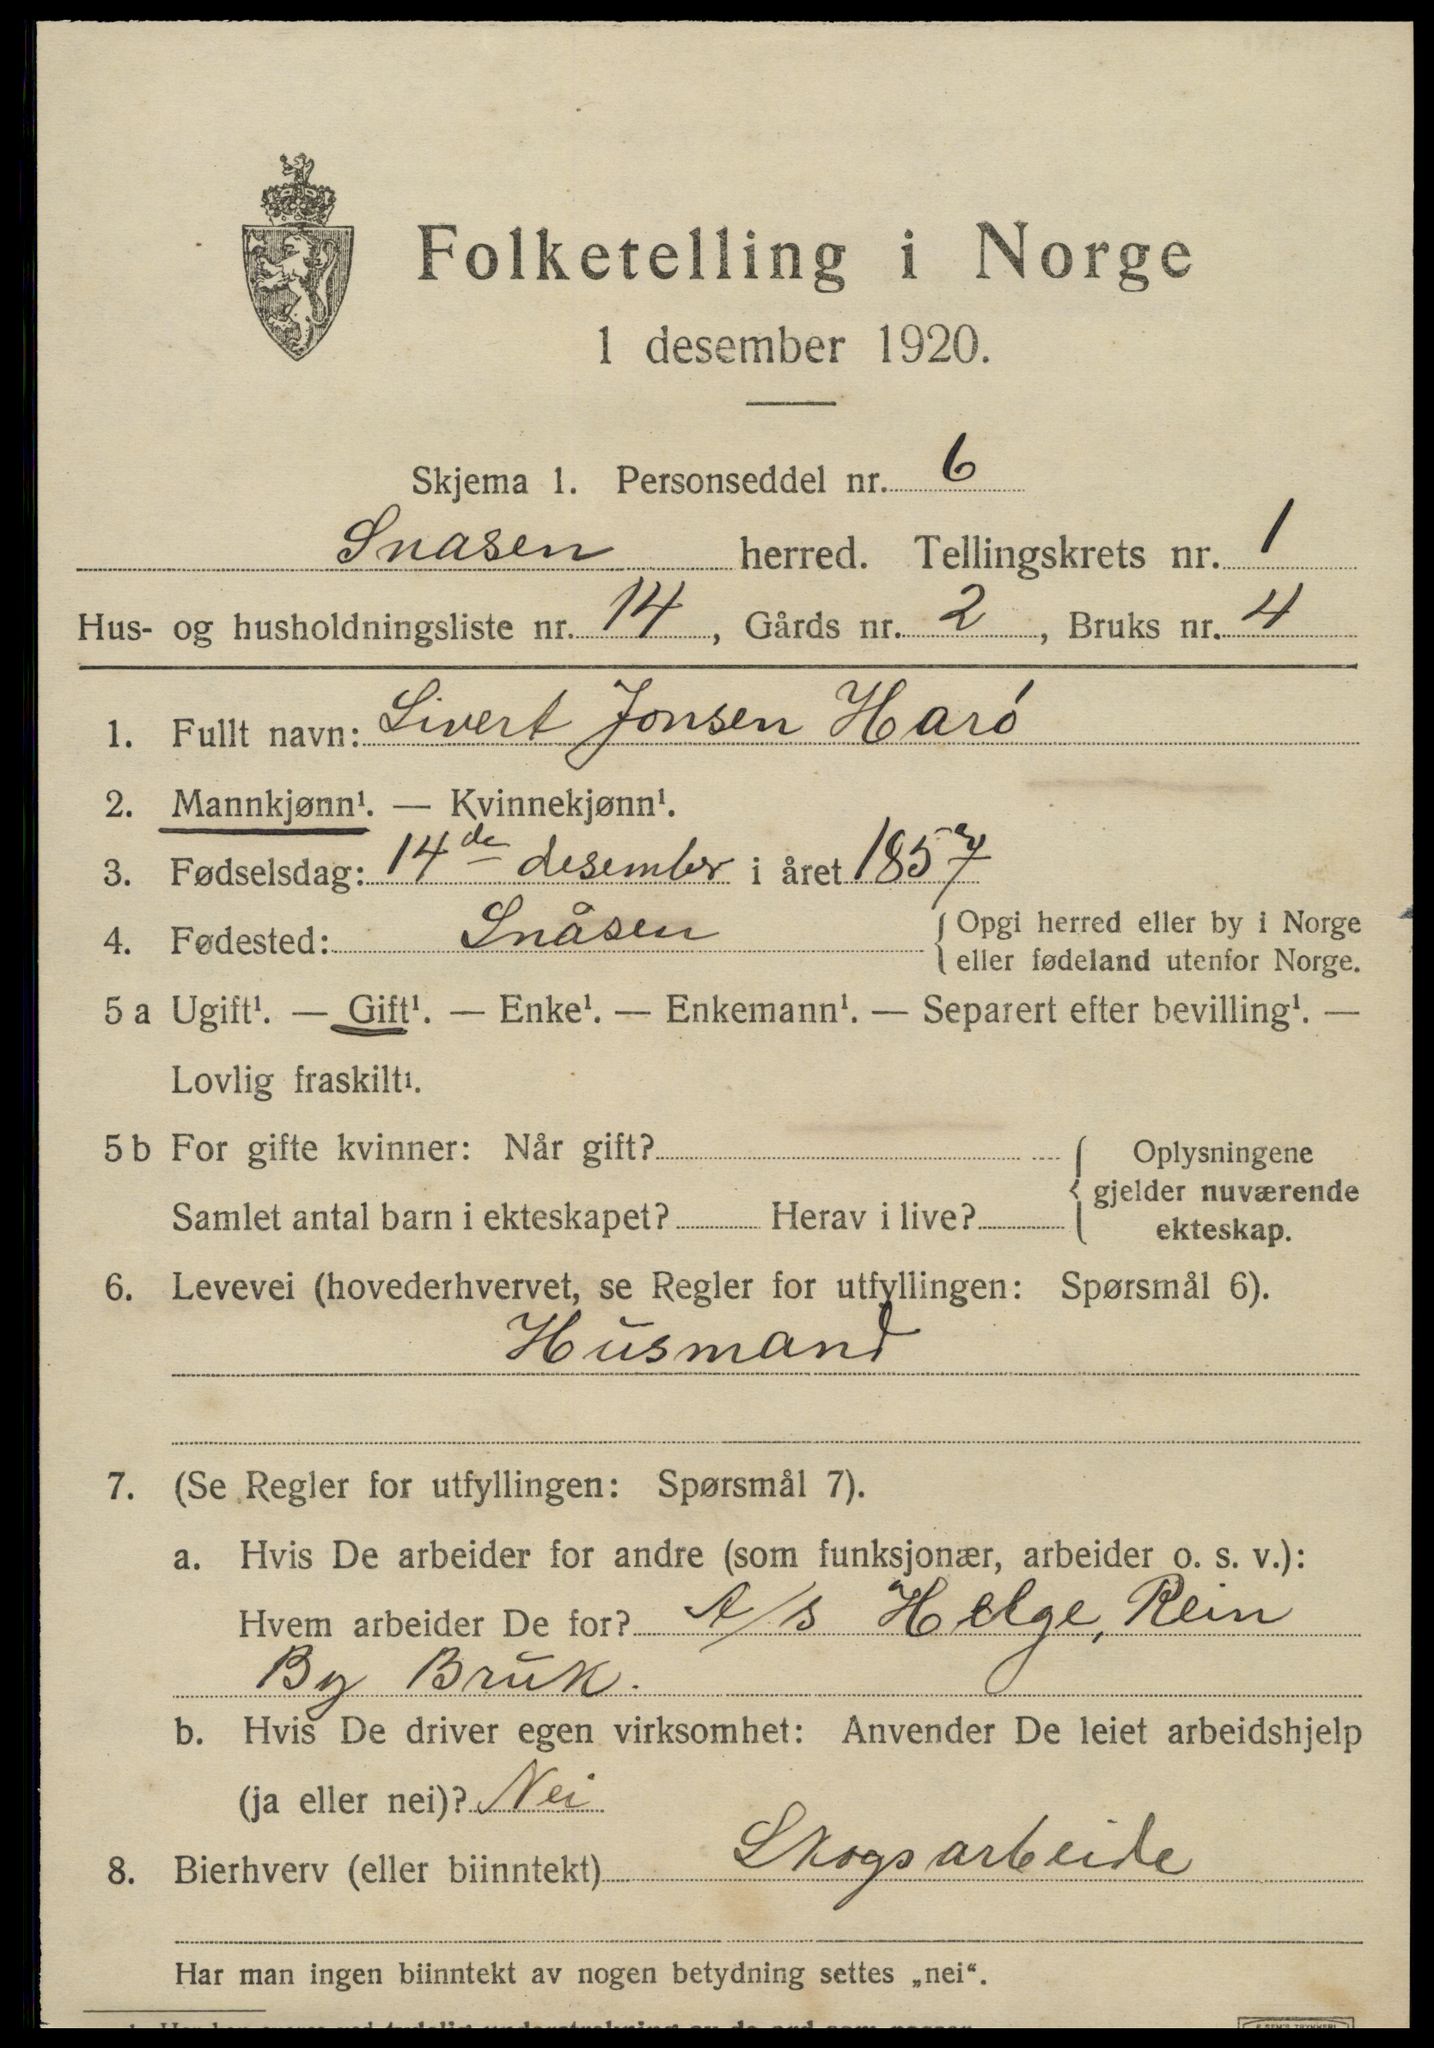 Folketelling i Norge
1 desember 1920.
Skjema 1. Personseddel nr. 6
Snasen herred. Tellingskrets nr. 1
Hus- og husholdningsliste nr. 14, Gårds nr. 2, Bruks nr. 4
1. Fullt navn: Sivert Jonsen Haró
2. Mannkjønn¹. — Kvinnekjønn¹.
3. Fødselsdag: 14de desember i året 1857
4. Fødested: Snåsen { Opgi herred eller by i Norge
eller fødeland utenfor Norge.
5 a Ugift¹. — Gift¹. — Enke¹. — Enkemann¹. — Separert efter bevilling¹. —
Lovlig fraskilt¹.
5 b For gifte kvinner: Når gift?
Samlet antal barn i ekteskapet? Herav i live?
Oplysningene
gjelder nuværende
ekteskap.
6. Levevei (hovederhvervet, se Regler for utfyllingen: Spørsmål 6).
Husmand
7. (Se Regler for utfyllingen: Spørsmål 7).
a. Hvis De arbeider for andre (som funksjonær, arbeider o. s. v.):
Hvem arbeider De for? A/s Helge, Rein
By Bruk.
b. Hvis De driver egen virksomhet: Anvender De leiet arbeidshjelp
(ja eller nei)? Nei
8. Bierhverv (eller biinntekt) Skogsarbeide
Har man ingen biinntekt av nogen betydning settes „nei“.